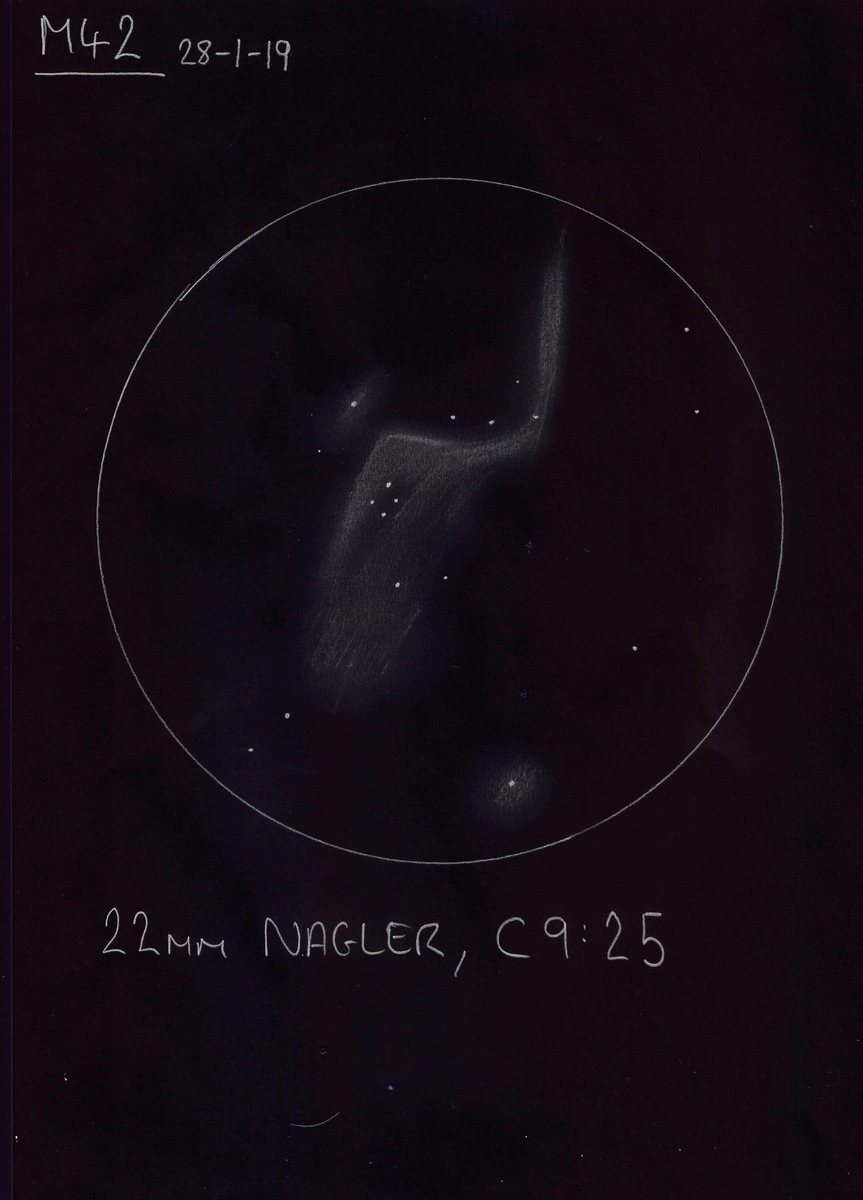 M42 28-1-19
22mm NAGLER, C9:25